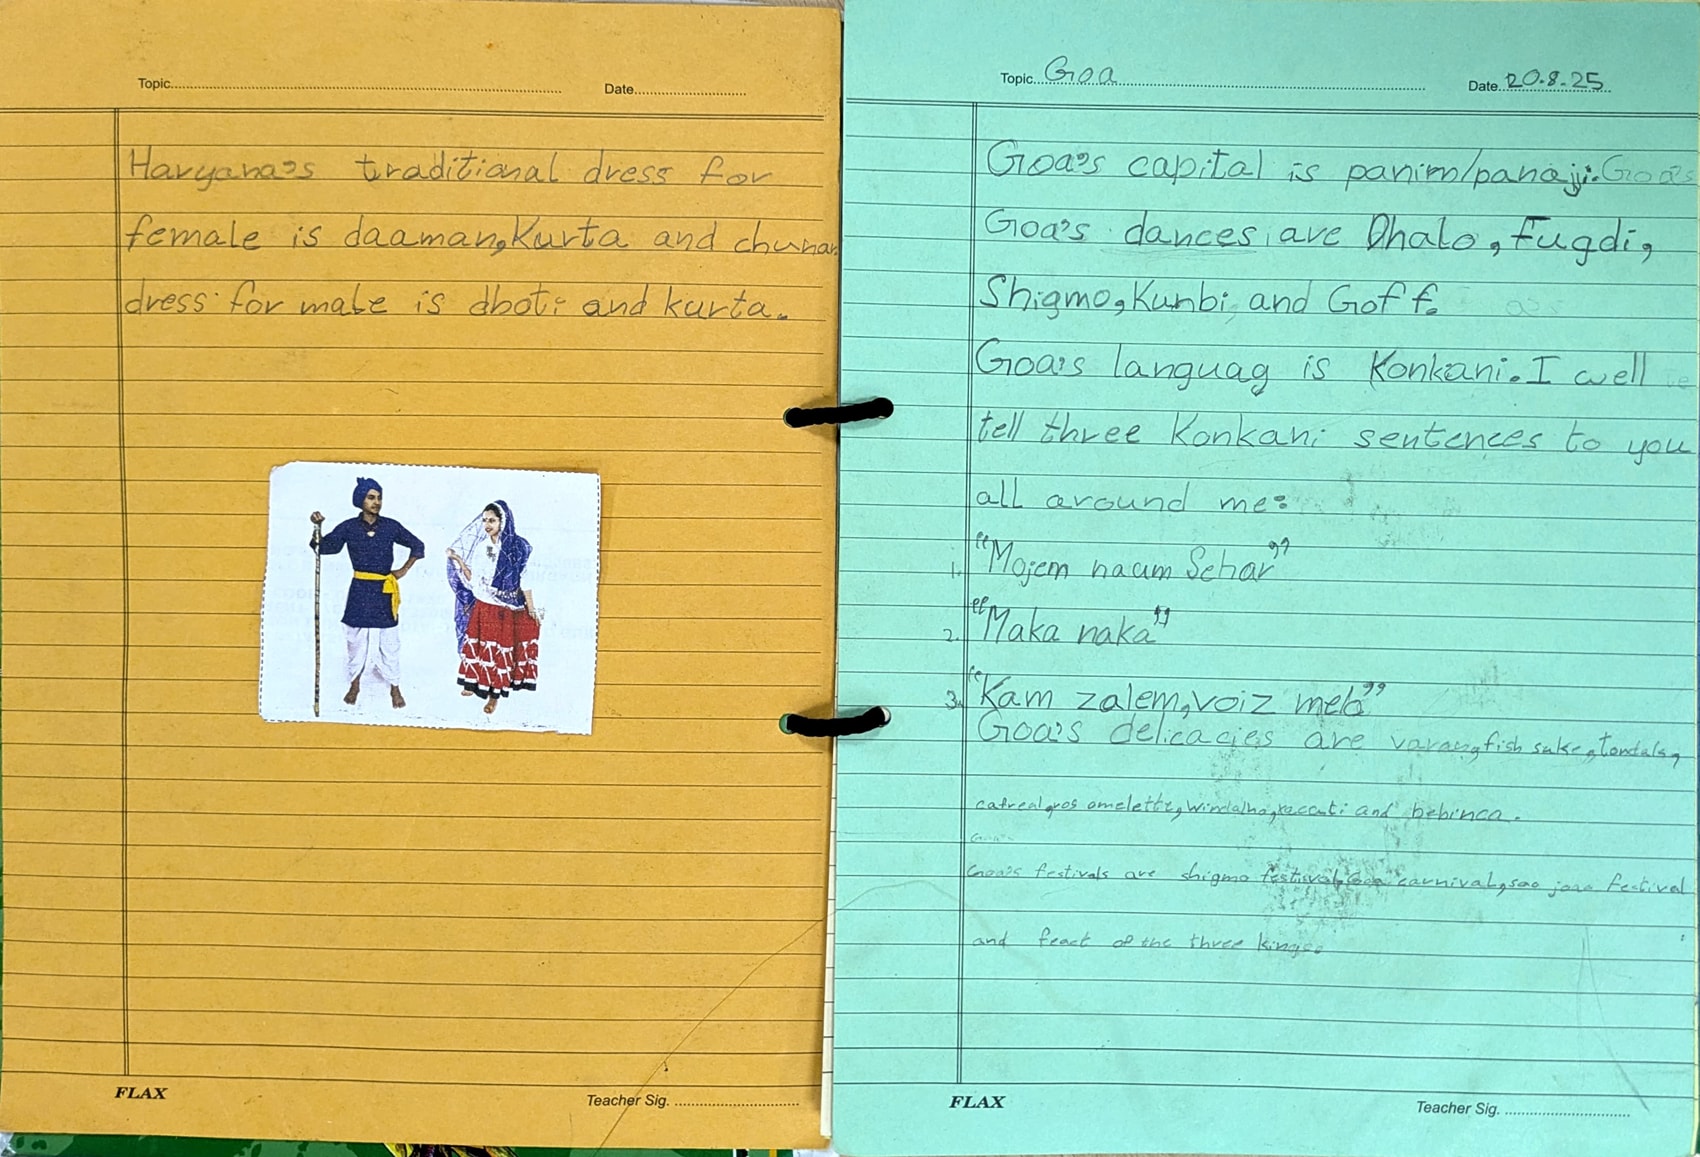 Topic
Date
Haryana's traditional dress for
female is daaman,Kurta and chunar
dress for male is dhoti and kurta.
FLAX
Teacher Sig.
Topic Goa
Date 20.8.25
Goa's capital is panim/panaji. Goa's
Goa's dances are Dhalo, Fugdi,
Shigmo,Kunbi and Goff.
Goa's languag is Konkani. I well
tell three Konkani sentences to you
all around me:
1. "Mojem naum Sehar"
2. "Maka naka"
3. "Kam zalem,voiz melo"
Goa's delicacies are varan,fish suke,tondak,
cafreal,ros omelette,Windalho,xacuti and bebinca.
Goa's festivals are shigmo festival,Goa carnival,sao joao festival
and feact of the three kings.
FLAX
Teacher Sig.